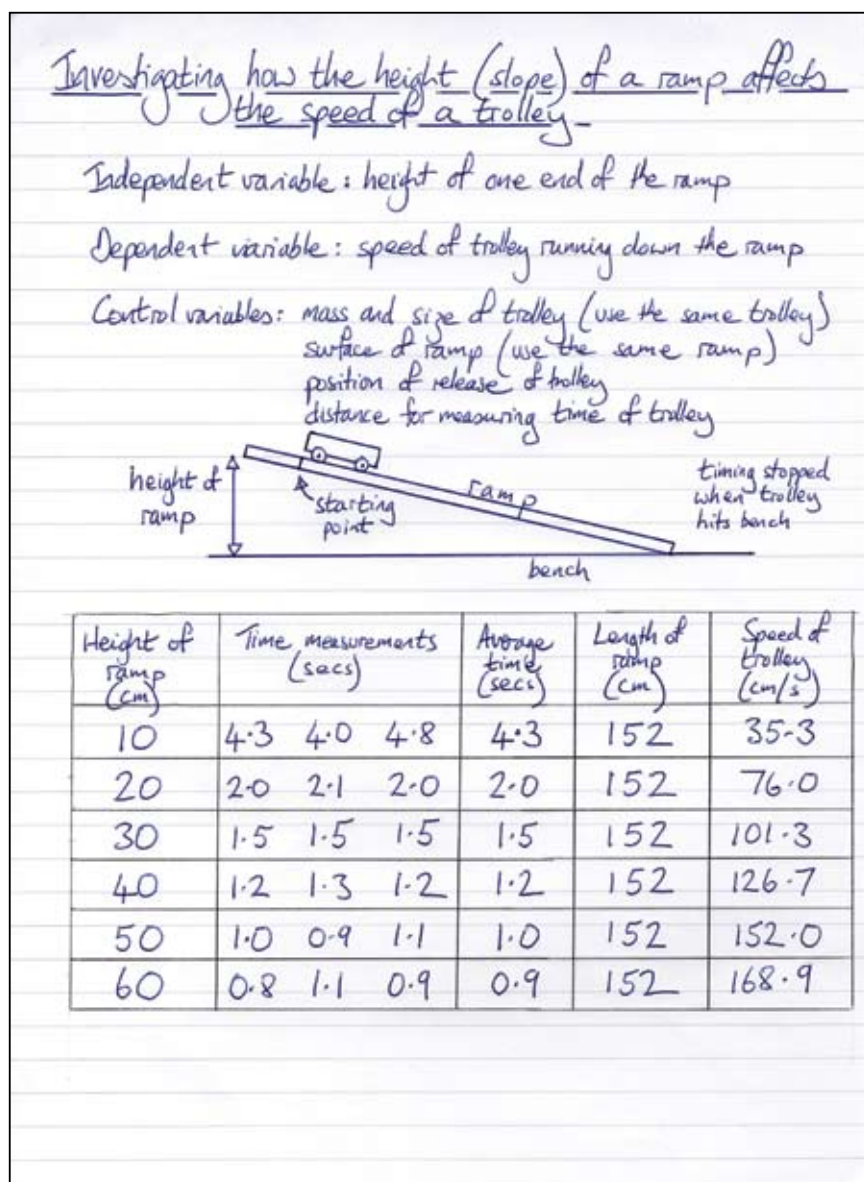 Investigating how the height (slope) of a ramp affects
the speed of a trolley
Independent variable: height of one end of the ramp
Dependent variable: speed of trolley running down the ramp
Control variables: mass and size of trolley (use the same trolley)
surface of ramp (use the same ramp)
position of release of trolley
distance for measuring time of trolley
height of
ramp
starting
point
ramp
timing stopped
when trolley
hits bench
bench
Height of ramp (cm) Time measurements (secs) Average time (secs) Length of ramp (cm) Speed of trolley (cm/s)
10 4.3 4.0 4.8 4.3 152 35.3
20 2.0 2.1 2.0 2.0 152 76.0
30 1.5 1.5 1.5 1.5 152 101.3
40 1.2 1.3 1.2 1.2 152 126.7
50 1.0 0.9 1.1 1.0 152 152.0
60 0.8 1.1 0.9 0.9 152 168.9